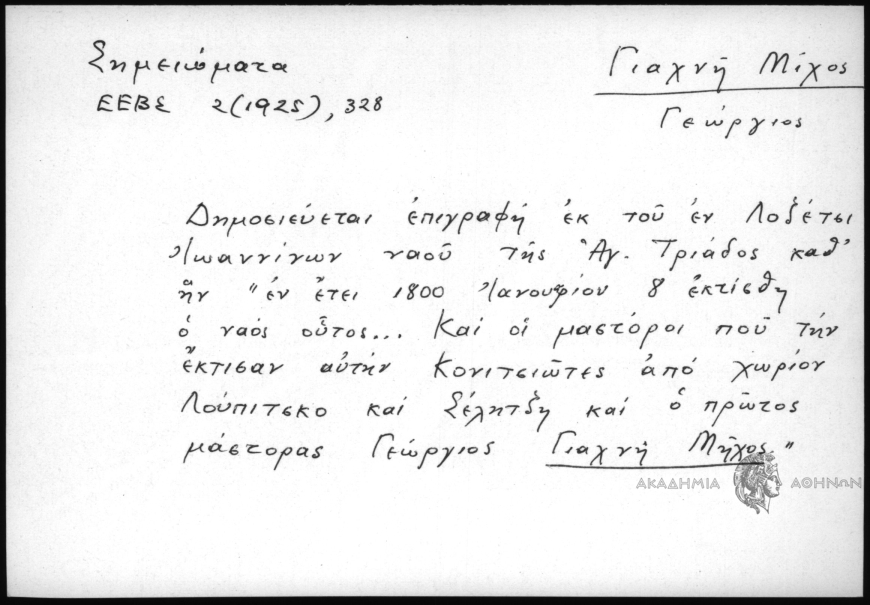 Σημειώματα
ΕΕΒΣ 2(1925), 328
Γιαχνῆ Μίχος
Γεώργιος
Δημοσιεύεται ἐπιγραφή ἐκ τοῦ ἐν Λοζέτσι
Ἰωαννίνων ναοῦ τῆς Ἁγ. Τριάδος καθ'
ἥν "ἐν ἔτει 1800 Ἰανουαρίου 8 ἐκτίσθη
ὁ ναός οὗτος... Καί οἱ μαστόροι ποῦ τήν
ἔκτισαν αὐτήν Κονιτσιῶτες ἀπό χωρίον
Λούπιτσκο καί Σέλητζη καί ὁ πρῶτος
μάστορας Γεώργιος Γιαχνῆ Μῆχος"
ΑΚΑΔΗΜΙΑ ΑΘΗΝΩΝ